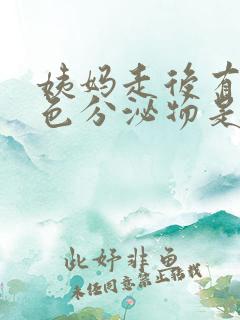 姨妈走後有
色分泌物是
此妤非鱼
未经同意禁止转载